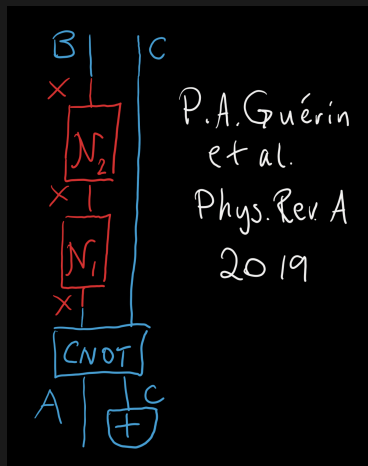 B C
X
N₂
X
N₁
X
CNOT
A C
+
P.A.Guérin
et al.
Phys. Rev. A
2019